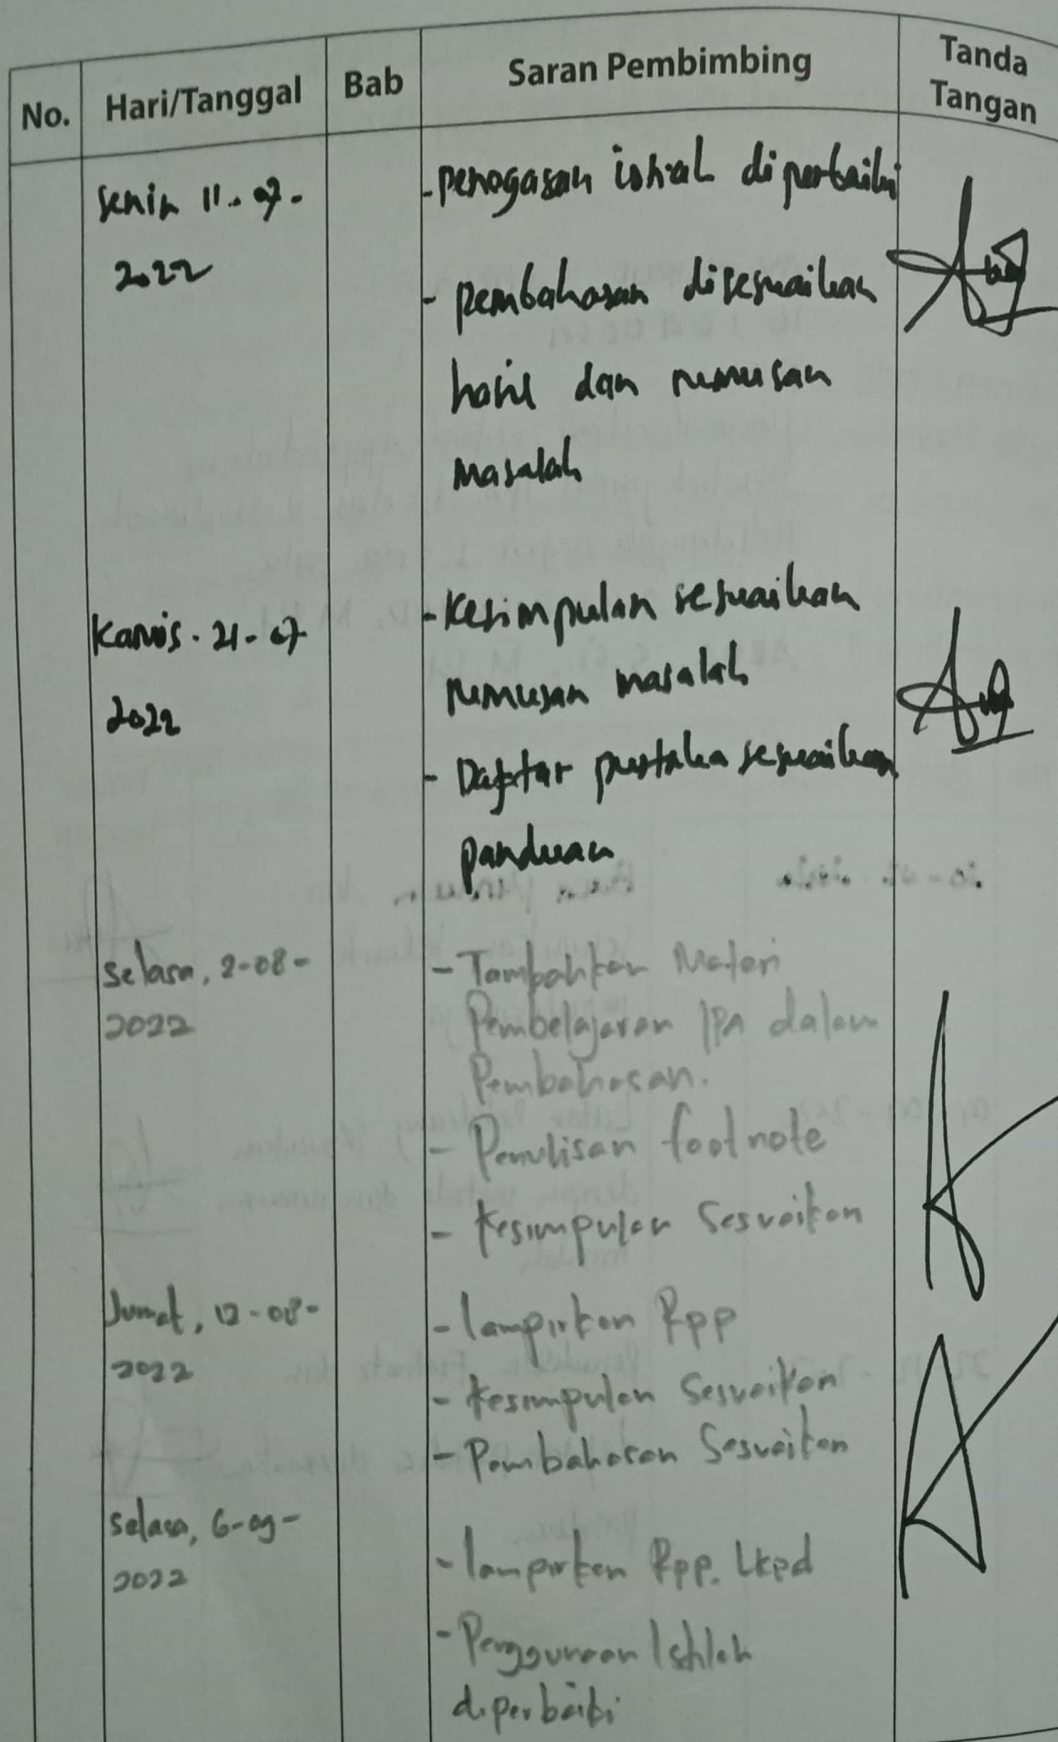 No. Hari/Tanggal Bab Saran Pembimbing Tanda Tangan
Senin 11-07-
2022
- penegasan istilah diperbaiki
- pembahasan disesuaikan
hasil dan rumusan
masalah
Kamis. 21-07
2022
- Kesimpulan sesuaikan
rumusan masalah
- Daftar pustaka sesuaikan
panduan
Selasa, 2-08-
2022
- Tambahkan Materi
Pembelajaran IPA dalam
Pembahasan.
- Penulisan footnote
- Kesimpulan Sesuaikan
Jumat, 12-08-
2022
- lampirkan Rpp
- Kesimpulan Sesuaikan
- Pembahasan Sesuaikan
Selasa, 6-09-
2022
- lampirkan Rpp. Lkpd
- Penggunaan Istilah
diperbaiki